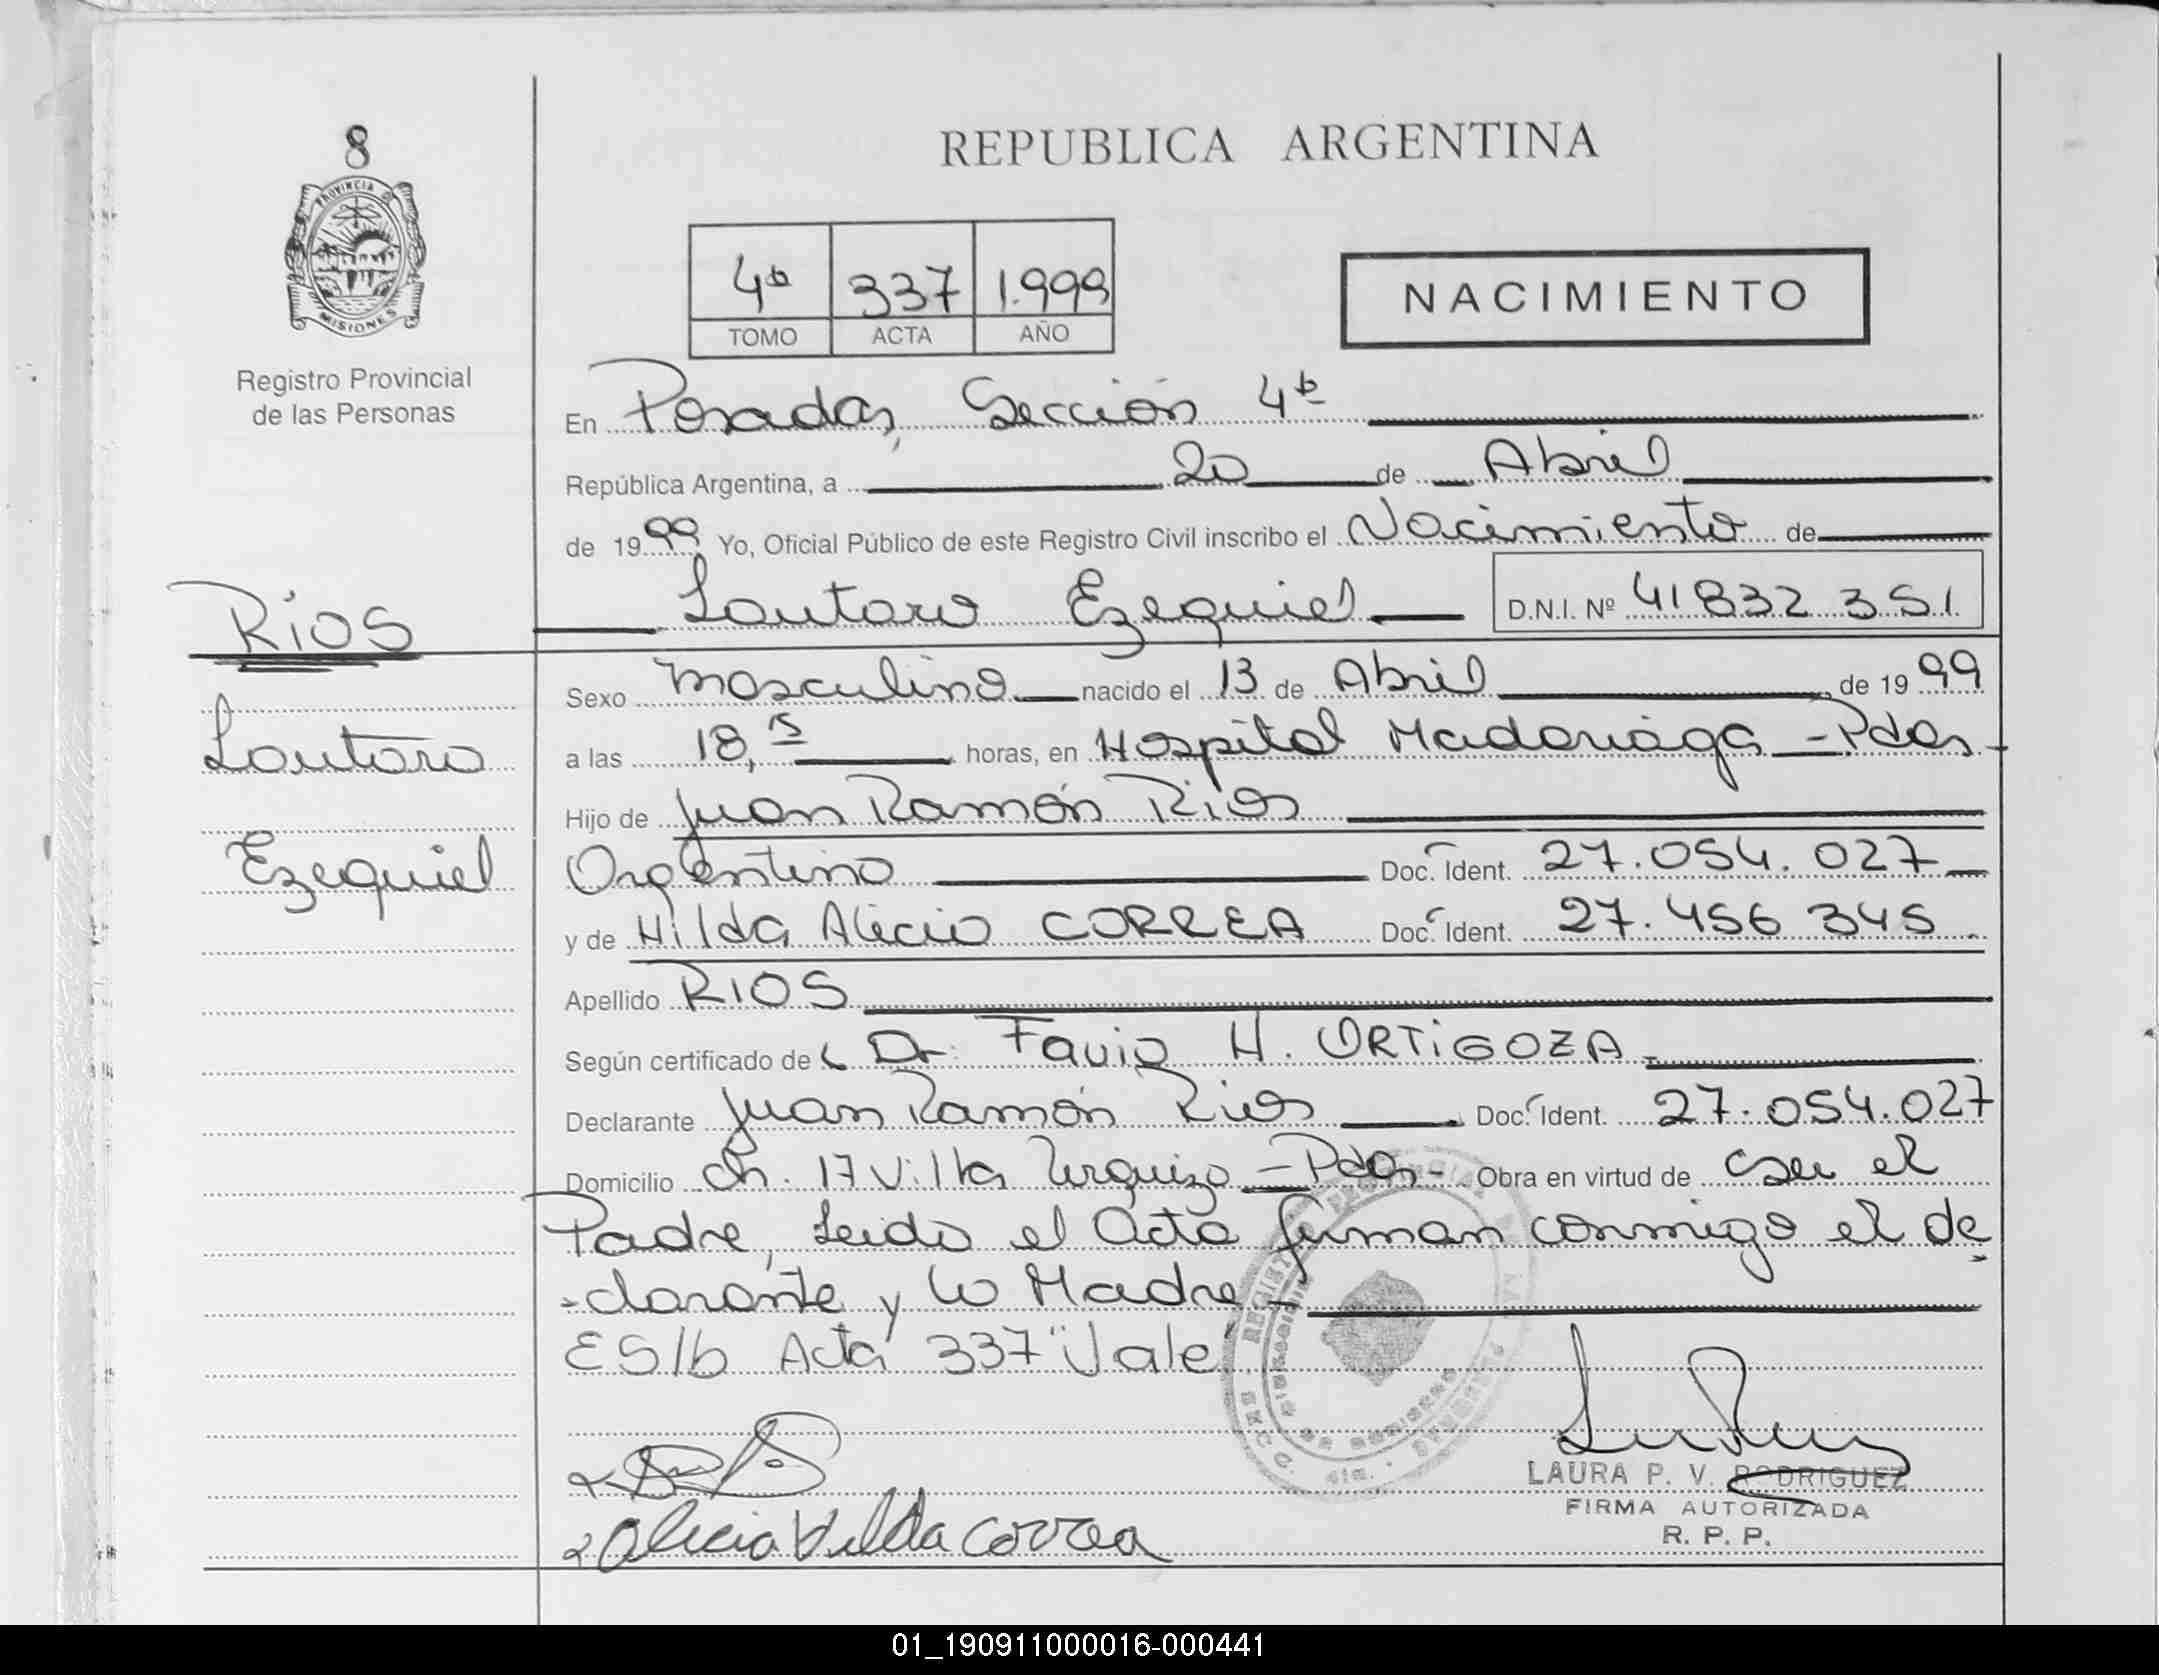 8
PROVINCIA DE
MISIONES
Registro Provincial
de las Personas
REPUBLICA ARGENTINA
4ta 337 1.999
TOMO ACTA AÑO
NACIMIENTO
En Posadas, Sección 4ta
República Argentina, a 20 de Abril
de 1999 Yo, Oficial Público de este Registro Civil inscribo el Nacimiento de
Lautaro Ezequiel D.N.I. Nº 41832351
RIOS
Lautaro
Ezequiel
Sexo Masculino nacido el 13 de Abril de 1999
a las 18,15 horas, en Hospital Madariaga - Pdas -
Hijo de Juan Ramón Rios
Argentino Doc. Ident. 27.054.027
y de Hilda Alicia CORREA Doc. Ident. 27.456 345
Apellido RIOS
Según certificado de Dr. Favio H. ORTIGOZA
Declarante Juan Ramón Rios Doc. Ident. 27.054.027
Domicilio Ch. 17 Villa Urquiza - Pdas - Obra en virtud de ser el
Padre, Leido el Acta firman conmigo el de
-clarante y la Madre -
ES/b Acta 337 "Vale
LAURA P. V. RODRIGUEZ
FIRMA AUTORIZADA
R. P. P.
Alicia Hilda Correa
01_190911000016-000441